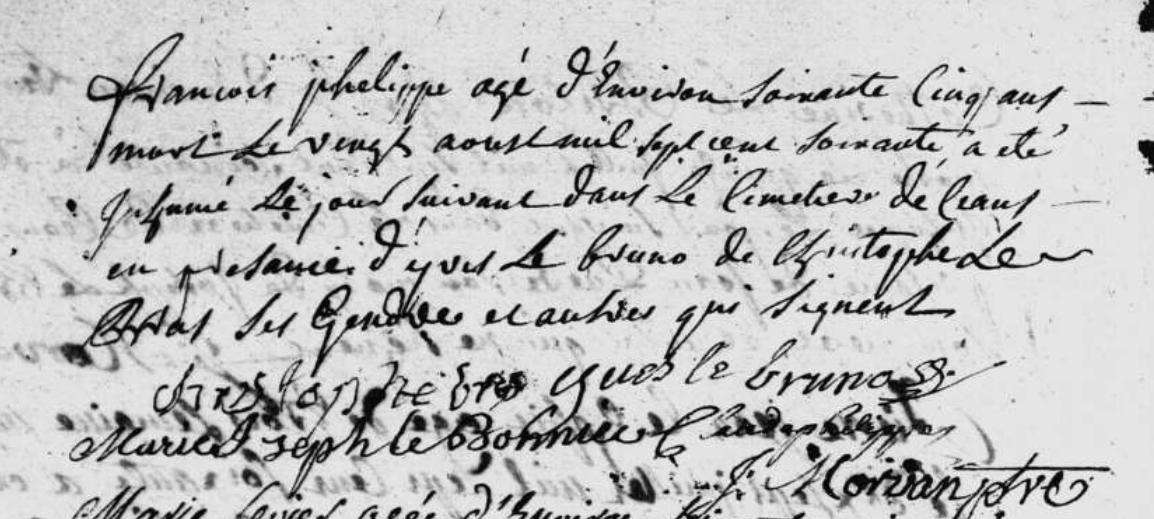 François phelippe agé d'Environ soixante Cinq ans —
mort Le vingt aoust mil sept cent soixante a eté
Inhumé Le jour suivant dans Le Cimetiere de Ceans —
en presance d'yves Le bruno de Christophe Le
Bras ses Gendres et autres qui signent
christophe bras yves le bruno
Marie Joseph le Claude philippes
J. Morvan ptre
Marie agée d'Environ